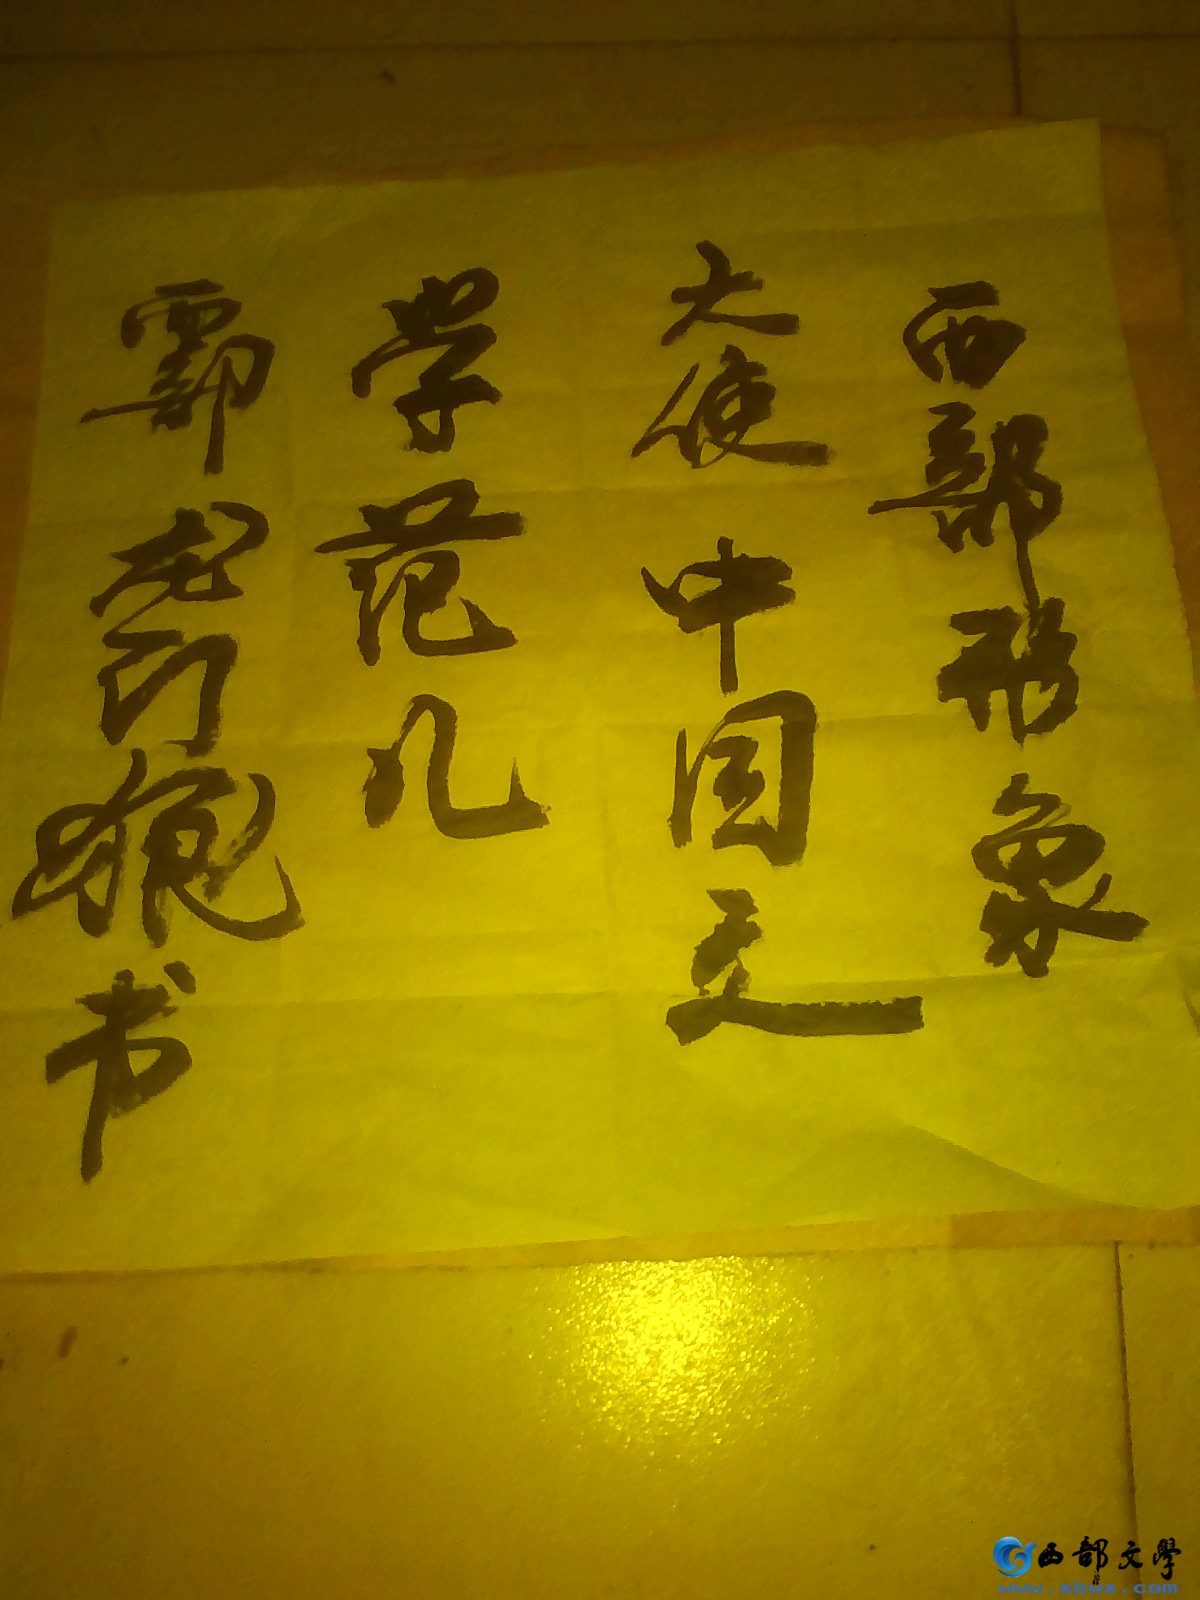 西部形象
大使中国文
学范儿
书
西部文學
www.xbwx.com